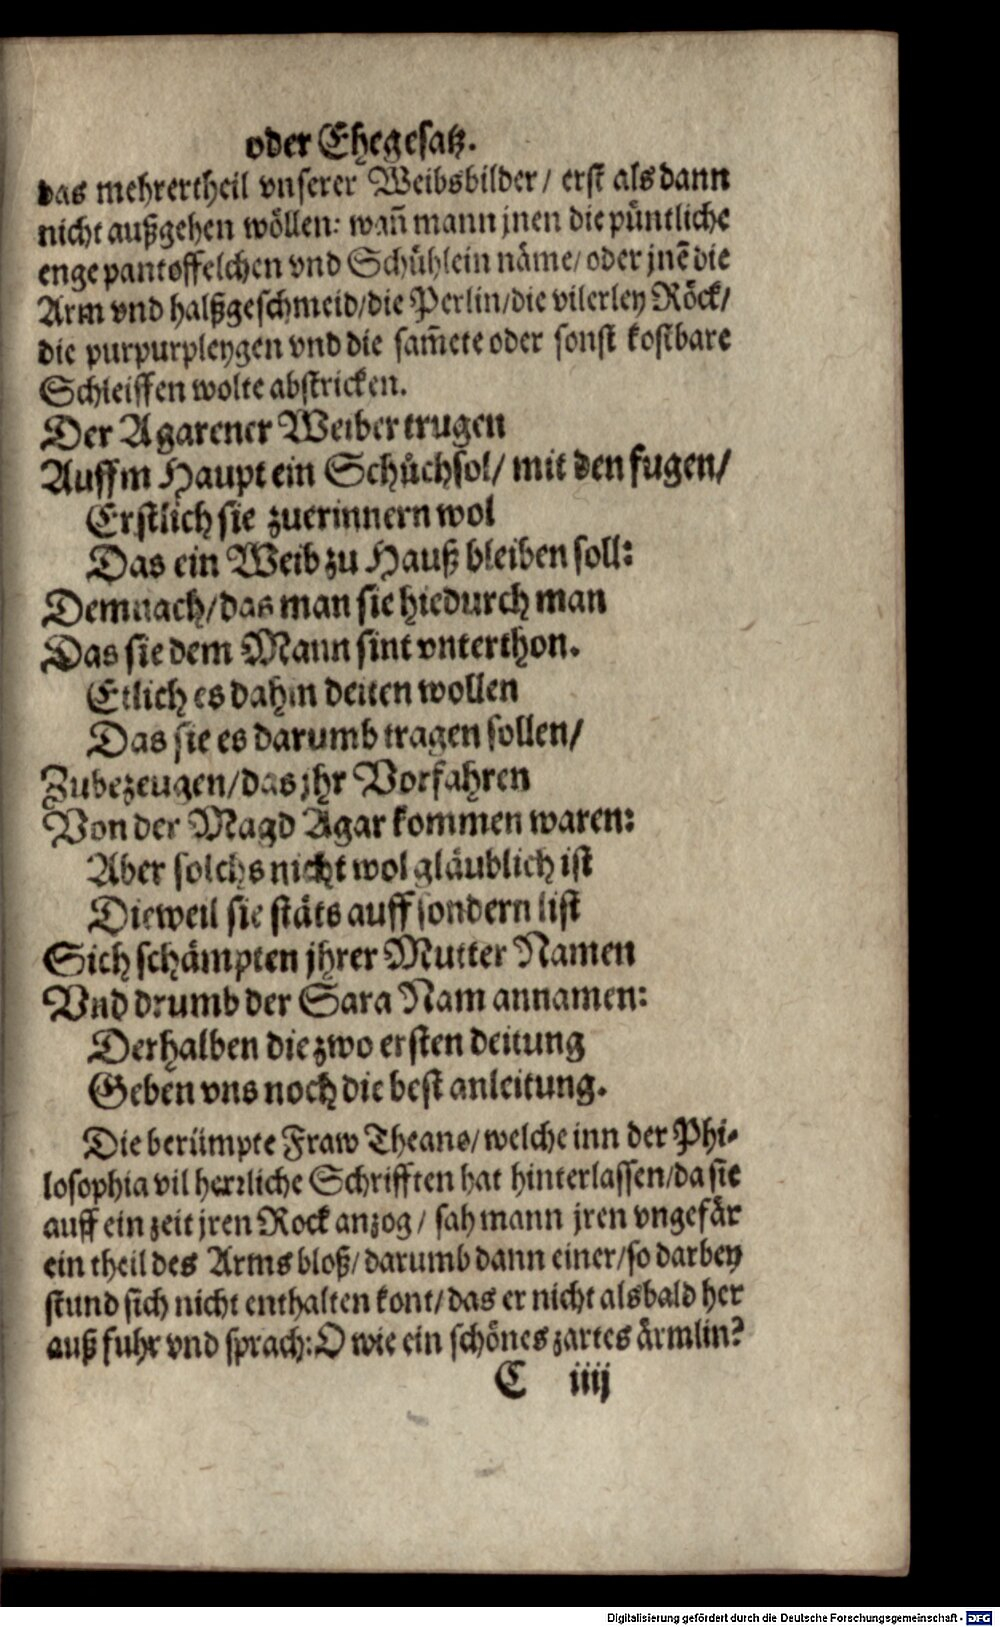 oder Ehegesatz.
das mehrertheil vnserer Weibsbilder/ erst als dann
nicht außgehen wöllen: wañ mann jnen die püntliche
enge pantoffelchen vnd Schühlein näme/ oder jnẽ die
Arm vnd halßgeschmeid/die Perlin/die vilerley Röck/
die purpurpleygen vnd die sam̃ete oder sonst kostbare
Schleiffen wolte abstricken.
Der Agarener Weiber trugen
Auffm Haupt ein Schůchsol/ mit den fugen/
Erstlich sie zuerinnern wol
Das ein Weib zu Hauß bleiben soll:
Demnach/das man sie hiedurch man
Das sie dem Mann sint vnterthon.
Etlich es dahin deiten wollen
Das sie es darumb tragen sollen/
Zubezeugen/das jhr Vorfahren
Von der Magd Agar kommen waren:
Aber solchs nicht wol gläublich ist
Dieweil sie stäts auff sondern list
Sich schämpten jhrer Mutter Namen
Vnd drumb der Sara Nam annamen:
Derhalben die zwo ersten deitung
Geben vns noch die best anleitung.
Die berümpte Fraw Theano/ welche inn der Phi-
losophia vil herrliche Schrifften hat hinterlassen/da sie
auff ein zeit jren Rock anzog/ sah mann jren vngefär
ein theil des Arms bloß/ darumb dann einer/so darbey
stund sich nicht enthalten kont/das er nicht alsbald her
auß fuhr vnd sprach: O wie ein schönes zartes ärmlin?
C iiij
Digitalisierung gefördert durch die Deutsche Forschungsgemeinschaft - DFG